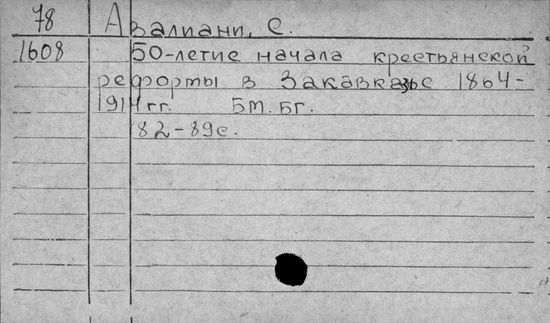 78 Авалиани, С.
1608 50-летие начала крестьянской
реформы в Закавказье 1864-
1914 гг. БМ. БГ.
82-89с.